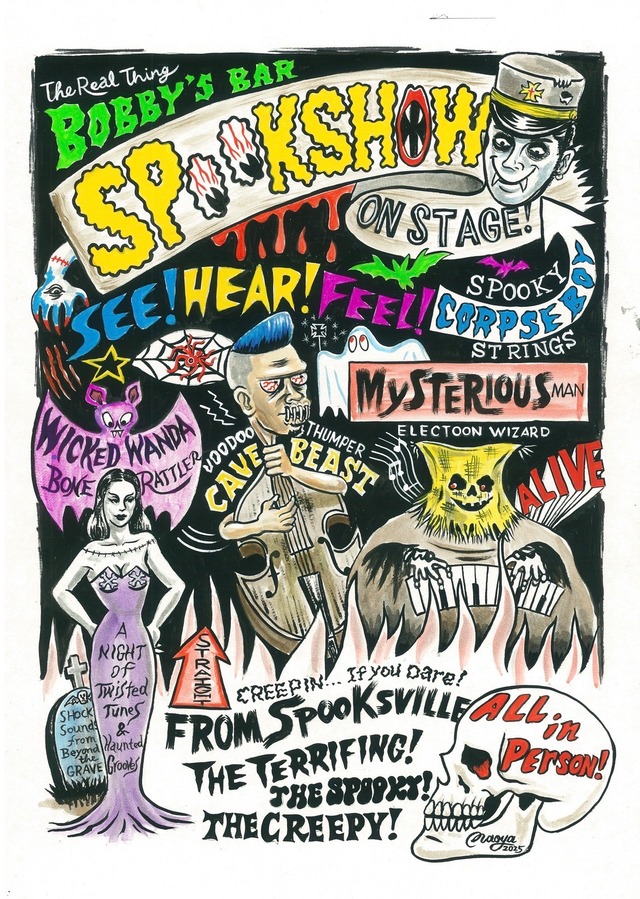 The Real Thing
BOBBY'S BAR
SPOOKSHOW
ON STAGE!
SEE! HEAR! FEEL!
SPOOKY
CORPSE BOY
STRINGS
MYSTERIOUS MAN
ELECTOON WIZARD
WICKED WANDA
BONE RATTLER
VOODOO THUMPER
CAVE BEAST
ALIVE
A
NIGHT
OF
Twisted
Tunes
&
Haunted
Grooves
SHOCK
Sounds
from
Beyond
the
GRAVE
STRAIGT
CREEPIN... If you Dare!
FROM SPOOKSVILLE
THE TERRIFING!
THE SPOOKY!
THE CREEPY!
ALL
in
PERSON!
Naoya
2025